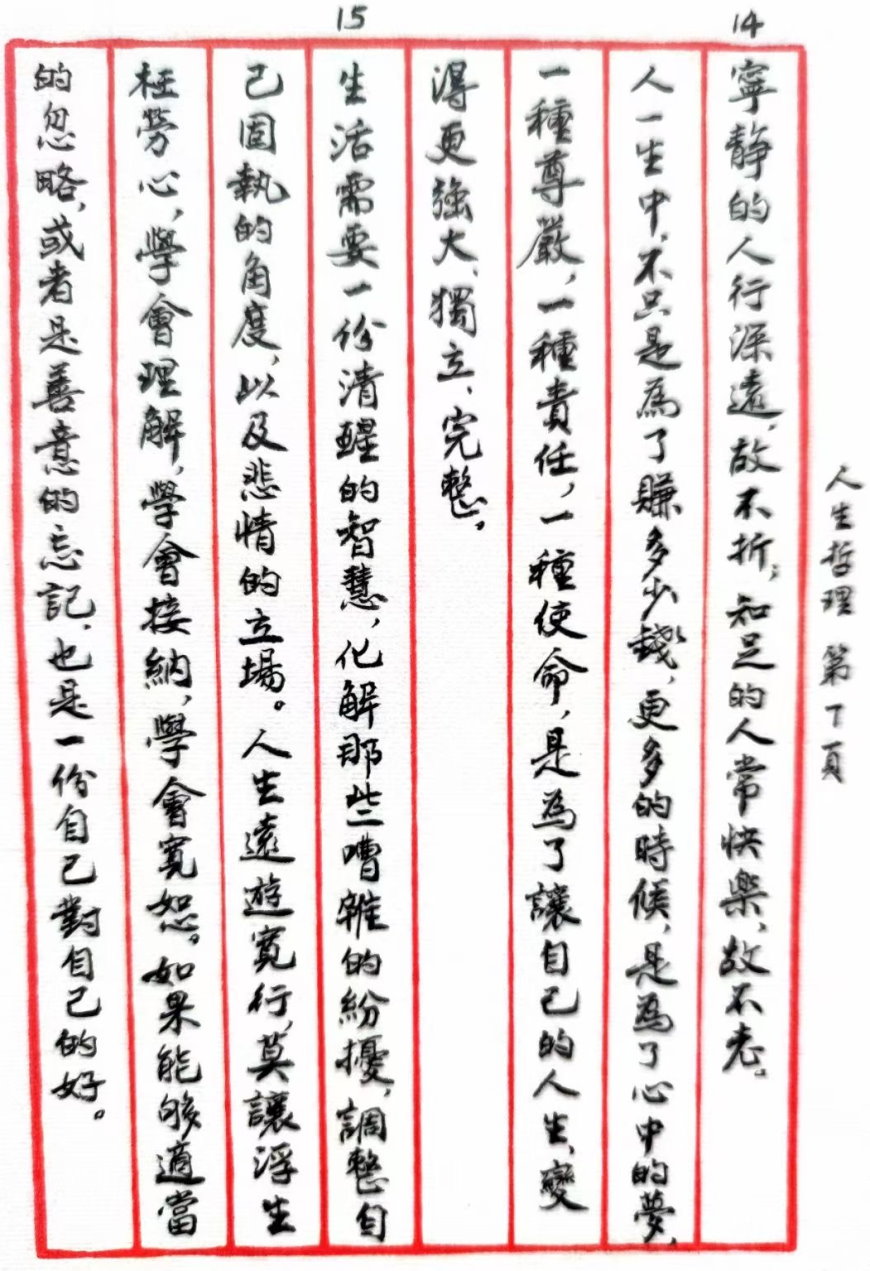 人生哲理 第7頁
14
寧静的人行深遠，故不折；知足的人常快樂，故不老。
人一生中，不只是為了賺多少錢，更多的時候，是為了心中的夢，
一種尊嚴，一種責任，一種使命，是為了讓自己的人生、變
得更強大、獨立、完整。
15
生活需要一份清醒的智慧，化解那些嘈雜的紛擾，調整自
己固執的角度，以及悲情的立場。人生遠遊寬行，莫讓浮生
枉勞心，學會理解，學會接納，學會寬恕。如果能够適當
的忽略，或者是善意的忘記，也是一份自己對自己的好。